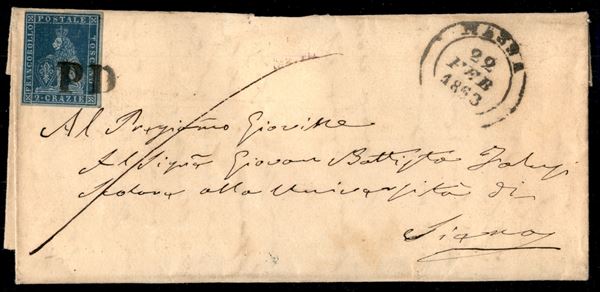 FRANCOBOLLO POSTALE TOSCANO
2 CRAZIE
PD
MASSA
22
FEB
1853
Al Pregiamo Giovine
Al Sigre Giovan Battista
alla Università di
Siena